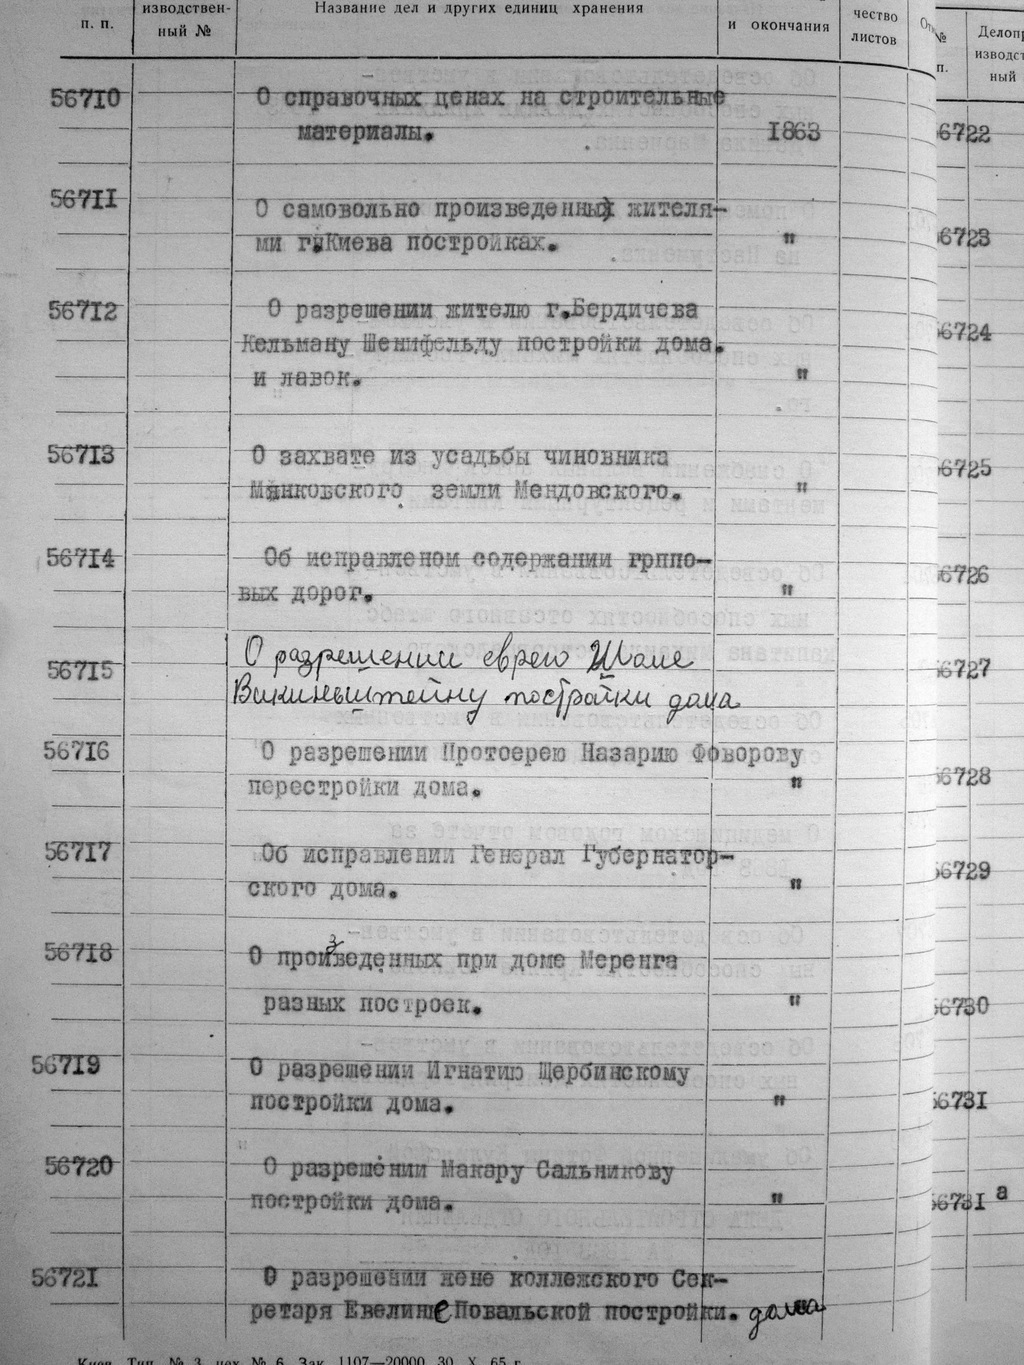 п. п.
изводствен-
ный №
Название дел и других единиц хранения
и окончания
чество
листов
№
п.
Делопр
изводст
ный
56710
О справочных ценах на строительные
материалы.
1863
56722
56711
О самовольно произведенных жителя-
ми г.Киева постройках.
"
56723
56712
О разрешении жителю г.Бердичева
Кельману Шенифельду постройки дома.
и лавок.
"
56724
56713
О захвате из усадьбы чиновника
Манковского земли Мендовского.
"
56725
56714
Об исправленом содержании грппо-
вых дорог.
"
56726
56715
О разрешении еврею Шоме
постройки дома
56727
56716
О разрешении Протоерею Назарию Фоворову
перестройки дома.
"
56728
56717
Об исправлении Генерал Губернатор-
ского дома.
"
56729
56718
О произведенных при доме Меренга
разных построек.
"
56730
56719
О разрешении Игнатию Щербинскому
постройки дома.
"
56731
56720
О разрешении Макару Сальникову
постройки дома.
"
56731 а
56721
О разрешении жене коллежского Сек-
ретаря Евелине Повальской постройки. дома
Киев, Тип. № 3, цех № 6, Зак. 1107—20000. 30. X. 65 г.